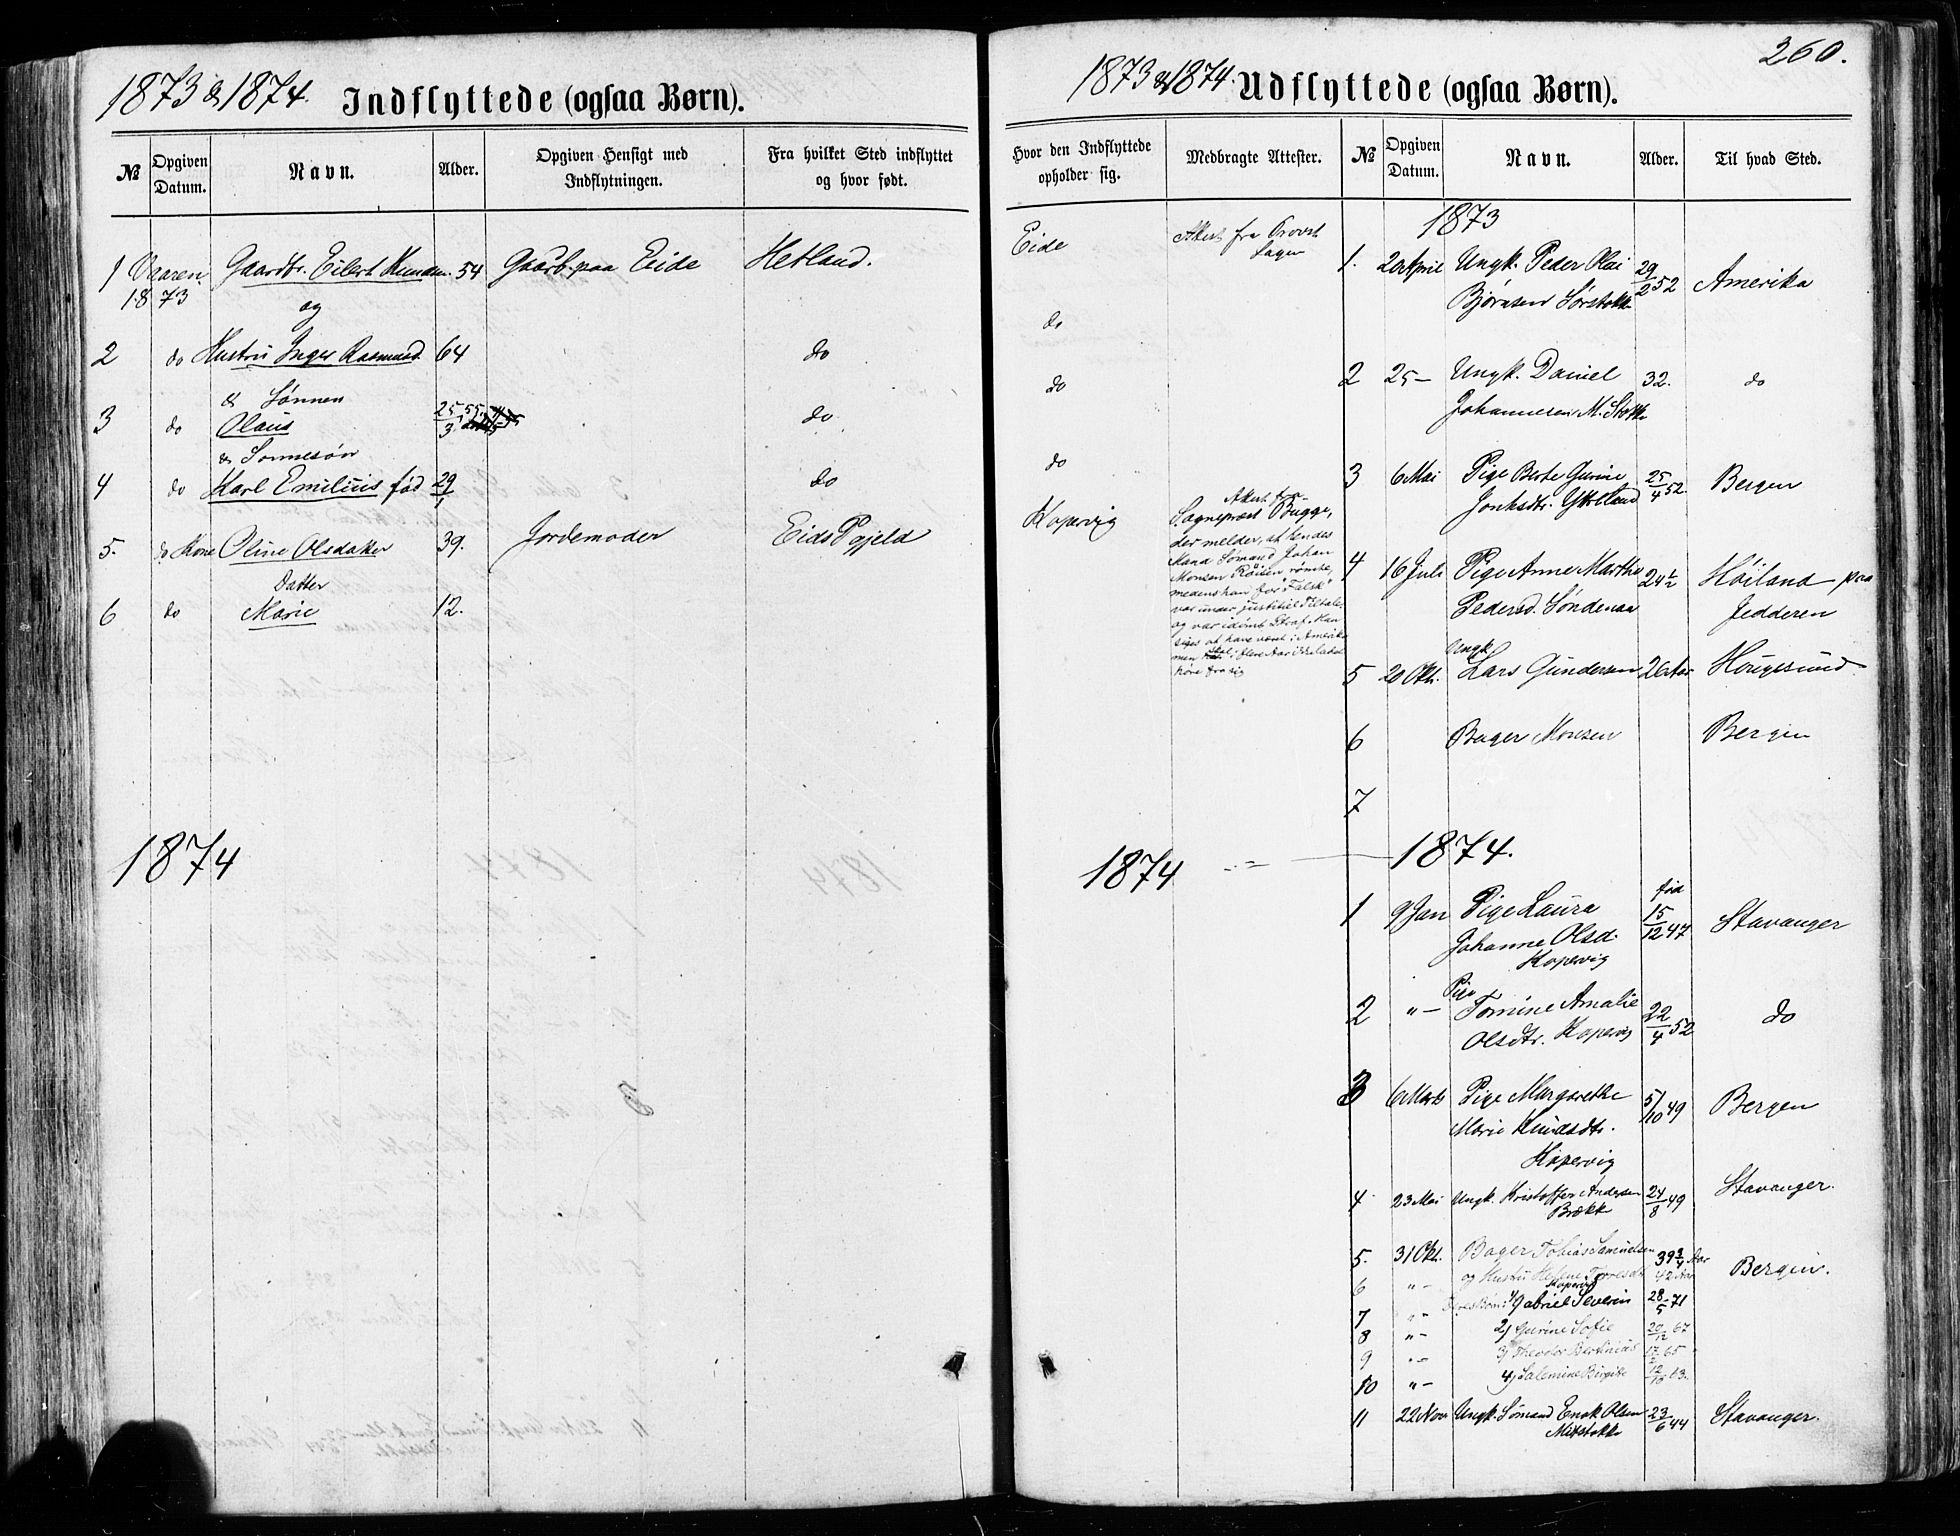 1873 & 1874. Indflyttede (ogsaa Børn).
№ Opgiven Datum. Navn. Alder. Opgiven Hensigt med Indflytningen. Fra hvilket Sted indflyttet og hvor født.
1 Vaaren 1873 Gaardbr. Eilert Knudsen 54 Gaardb. paa Eide Hetland.
og
2 do Hustru Inger Rasmusd. 64 do
& Sønnen
3 do Olaus 25/3 55 do
& Sonnesøn
4 do Karl Emilius fød 29/1 do
5. do Kone Oline Olsdatter 39. Jordemoder Eids Pgjeld
Datter
6 do Marie 12.
1874
1873 & 1874. Udflyttede (ogsaa Børn). 260.
Hvor den Indflyttede opholder sig. Medbragte Attester. № Opgiven Datum. Navn. Alder. Til hvad Sted.
Eide Attest fra Provst
do
do
do
Kopervig
Attest fra
Sognepræst Bugge,
der melder, at hendes
Mand Sømand Johan
Monsen Røisen rømte,
medens han for "Falsk"
var under justitiel Tiltale
og var idømt Straf. Han
siges at have været i Amerika
men skal i flere Aar ikke ladet
høre fra sig
1873
1. 20 April Ungk. Peder Olai 29/2 52 Amerika
Bjørnsen Sørstokke
2 25 — Ungk. Daniel 32. do
Johannesen M. Stokke
3 6 Mai Pige Berte Gurine 25/4 52. Bergen
4 16 Juli Pige Anne Marthe 24½ Høiland paa
Pedersd. Søndenaa Jedderen
Ungk
5 20 Okt. Lars Gundersen 26 Aar Hougesund
6 Bager Monsen Bergen
7
1874 — 1874.
fød
1 9 Jan Pige Laura 15/12 47 Stavanger
Johanne Olsd.
Kopervig
Pige
2 " — Tomine Amalie 22/4 52 do
Olsdtr. Kopervig
3 6 Marts Pige Margrethe 5/10 49 Bergen
Marie Knudsdtr.
Kopervig
4 23 Mai Ungk. Kristoffer Andersen 24/8 49 Stavanger.
Brække
5. 31 Okt. Bager Tobias Samuelsen 39¾ Aar Bergen.
6 " — og Hustru Helene Torresdt. 42 Aar
Kopervig
7 " — 1) Gabriel Severin 28/5 71
8 " — 2) Gurine Sofie 20/12 67
9 " — 3) Theodor Bertinius 65
10 " — 4) Salemine Birgitte 12/10 63.
11 22 Nov Ungk. Sømand Enok Olsen 23/6 44 Stavanger.
Midtstokke